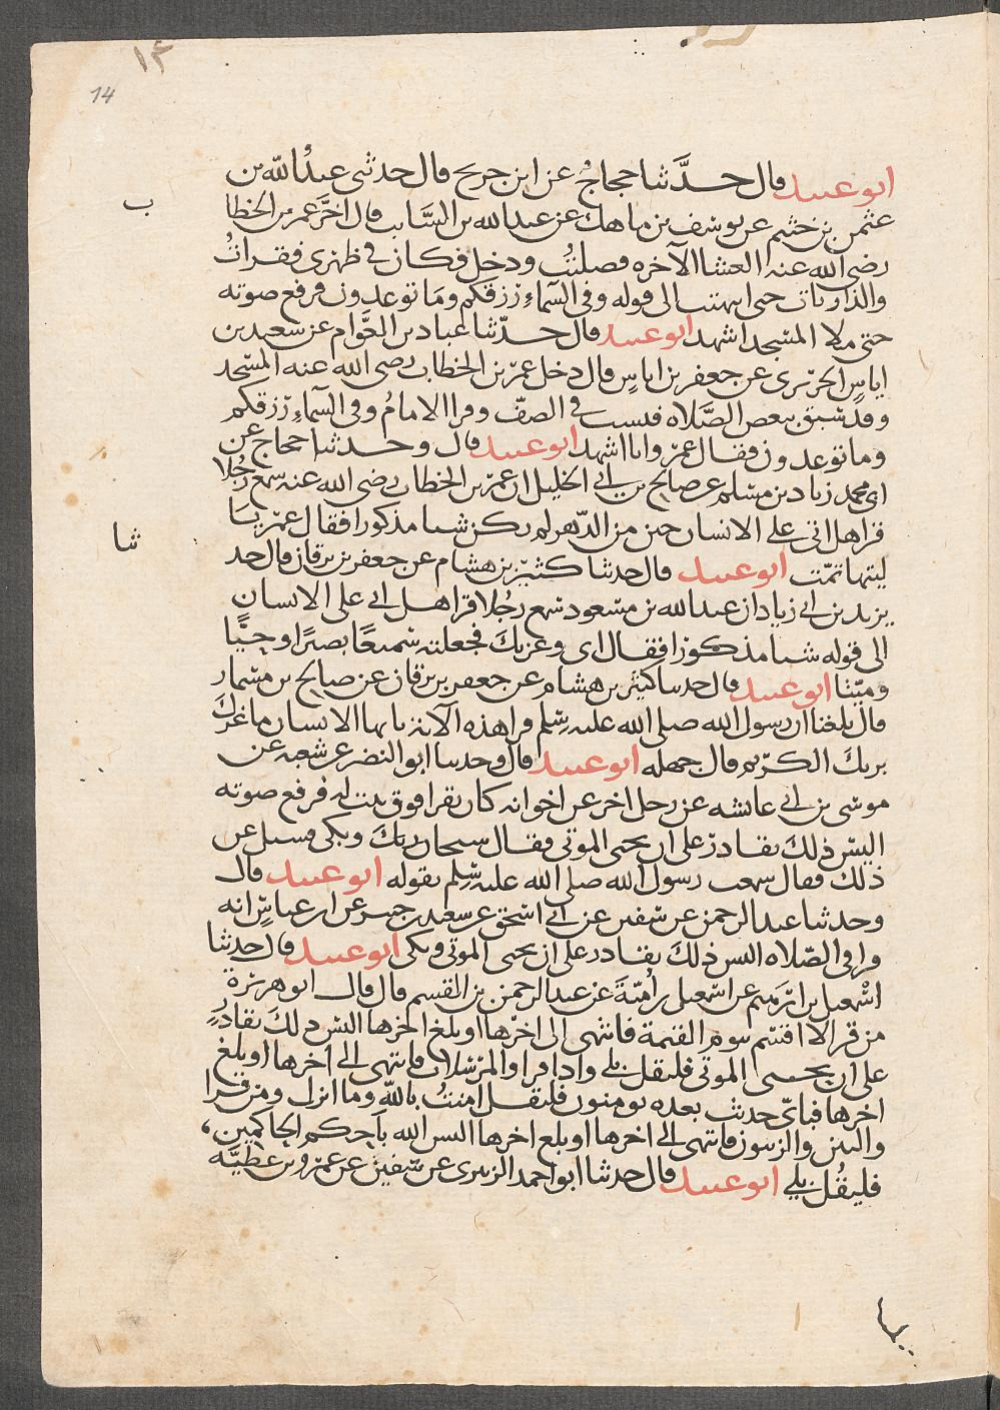 ١٣
14
ابو عبيد قال حدَّثنا حجاجُ عن ابن جريح قال حدثنى عبدُ الله بن
عثمن بن خثيم عن يوسف بن ماهك عن عبد الله بن السَّايب قال اخَّر عمر بن الخطا
ب
رضى الله عنه العشا الآخره فصليتُ ودخل فكان في ظهرى فقراتُ
والذاريات حتى انتهيت الى قوله وفي السَّماءِ رزقكم وما توعدون فرفع صوته
حتى ملا المسجد اشهد ابو عبيد قال حدّثنا عباد بن العَّوام عن سعيد بن
اياسٍ الجريرى عن جعفر بن اياسٍ قال دخل عمر بن الخطاب رضى الله عنه المسجد
وقد سُبق ببعض الصَّلاه فنسب في الصفّ وقرا الامامُ وفي السَّماءِ رزقكم
وما توعدون فقال عمر وانا اشهد ابو عبيد قال وحدثنا حجاج عن
ابى محمد زياد بن مسلم عن صالح بن ابي الخليل ان عمر بن الخطاب رضى الله عنه سمع رجُلا
قرا هل اتى على الانسان حين من الدّهر لم يكن شيا مذكورا فقال عمر يا
ليتها تمّت ابو عبيد قال حدثنا كثير بن هشام عن جعفر بن برقان قال حد
ثنا
يزيد بن ابي زياد ان عبد الله بن مسعود سمع رجُلا قرا هل اتى على الانسان
الى قوله شيا مذكورا فقال اى وعزتك فجعلته سميعًا بصيرًا وحيًّا
وميّتا ابو عبيد قال حدثنا كثير بن هشام عن جعفر بن برقان عن صالح بن مسمار
قال بلغنا ان رسول الله صلى الله عليه وسلم قرا هذه الآية يايها الانسان ما غرَّكَ
بربكَ الكريم قال جهله ابو عبيد قال وحدثنا ابو النضر عن شعبه عن
موسى بن ابي عائشه عن رجل اخر عن اخوانه كان يقرا فوق بيت له فرفع صوته
اليس ذلك بقادرٍ على ان يحيى الموتى فقال سبحان ربكَ وبكى فسيل عن
ذلك فقال سمعت رسول الله صلى الله عليه وسلم يقوله ابو عبيد قال
وحدثنا عبد الرحمن عن سفين عن ابي اسحق عن سعيد بن جبير عن ابن عباسٍ انه
قرا في الصّلاه اليس ذلكَ بقادر على ان يحيى الموتى وبكى ابو عبيد قال حدثنا
اسْمعيل بن ابرهيم عن اسمعيل بن أميّةَ عن عبد الرحمن بن القسم قال قال ابو هريرة
من قرا لا اقسم بيوم القيمة فانتهى الى اخرها او بلغ اخرها اليس ذلكَ بقادرٍ
على ان يحيى الموتى فليقل بلى واذا قرا والمرسلات فانتهى الى اخرها او بلغ
اخرها فباىّ حديث بعده يومنون فليقل امنتُ بالله وما انزل ومن قرا
والتين والزيتون فانتهى الى اخرها او بلغ اخرها اليس الله باحكم الحاكمين
فليقُل بلى ابو عبيد قال حدثنا ابو احمد الزبيرى عن سفين عن عمرو بن عطيّه